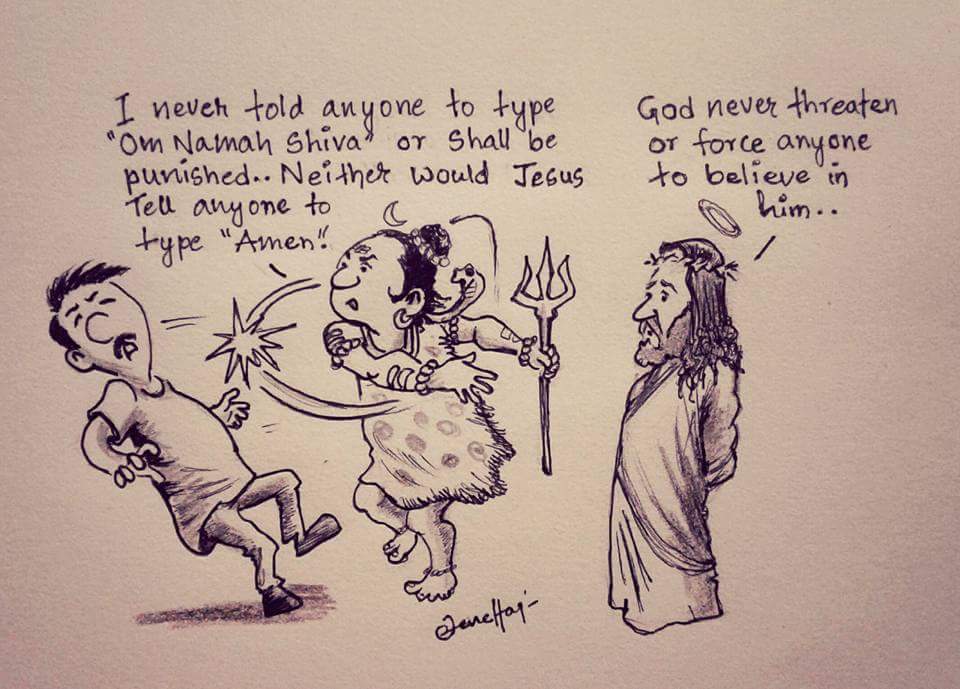 I never told anyone to type
"Om Namah Shiva" or Shall be
punished.. Neither would Jesus
Tell anyone to
type "Amen".
God never threaten
or force anyone
to believe in
him..